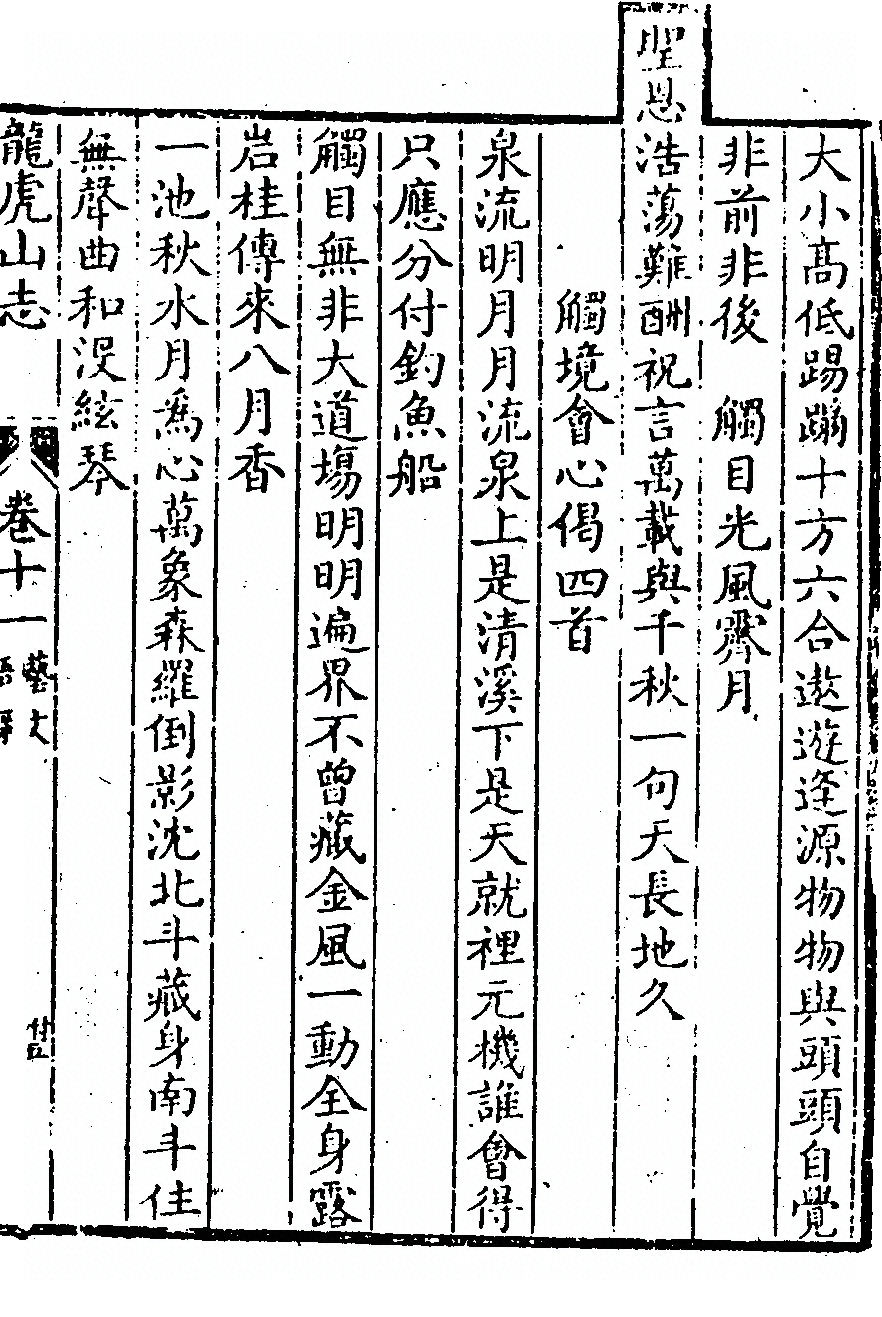 大小髙低踢蹦十方六合遨遊逢源物物與頭頭自覺
非前非後　觸目光風霽月
聖恩浩蕩難酬祝言萬載與千秋一句天長地久
觸境會心偈四首
泉流明月月流泉上是清溪下是天就裡元機誰會得
只應分付釣魚船
觸目無非大道塲明明遍界不曾藏金風一動全身露
岩桂傳來八月香
一池秋水月為心萬象森羅倒影沈北斗藏身南斗住
無聲曲和没絃琴
龍虎山志
卷十一
藝文